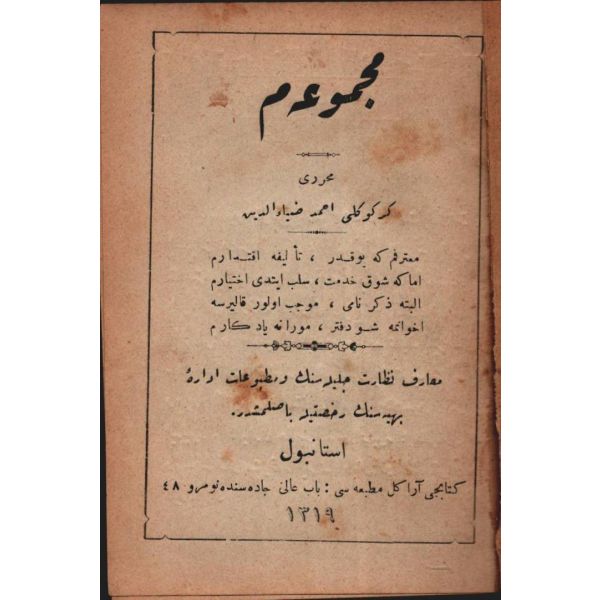 مجموعه م
محرری
كركوكلی احمد ضیاءالدین
معترفم كه یوقدر ، تألیفه اقتدارم
اما كه شوق خدمت ، سلب ایتدی اختیارم
البته ذكر نامی ، موجب اولور قالیرسه
اخوانمه شو دفتر ، مورانه یادكارم
معارف نظارت جلیله سنك و مطبوعات ادارهٔ
بهیه سنك رخصتیله باصلمشدر.
استانبول
كتابجی آراكل مطبعه سی : باب عالی جاده سنده نومرو ٤٨
١٣١٩